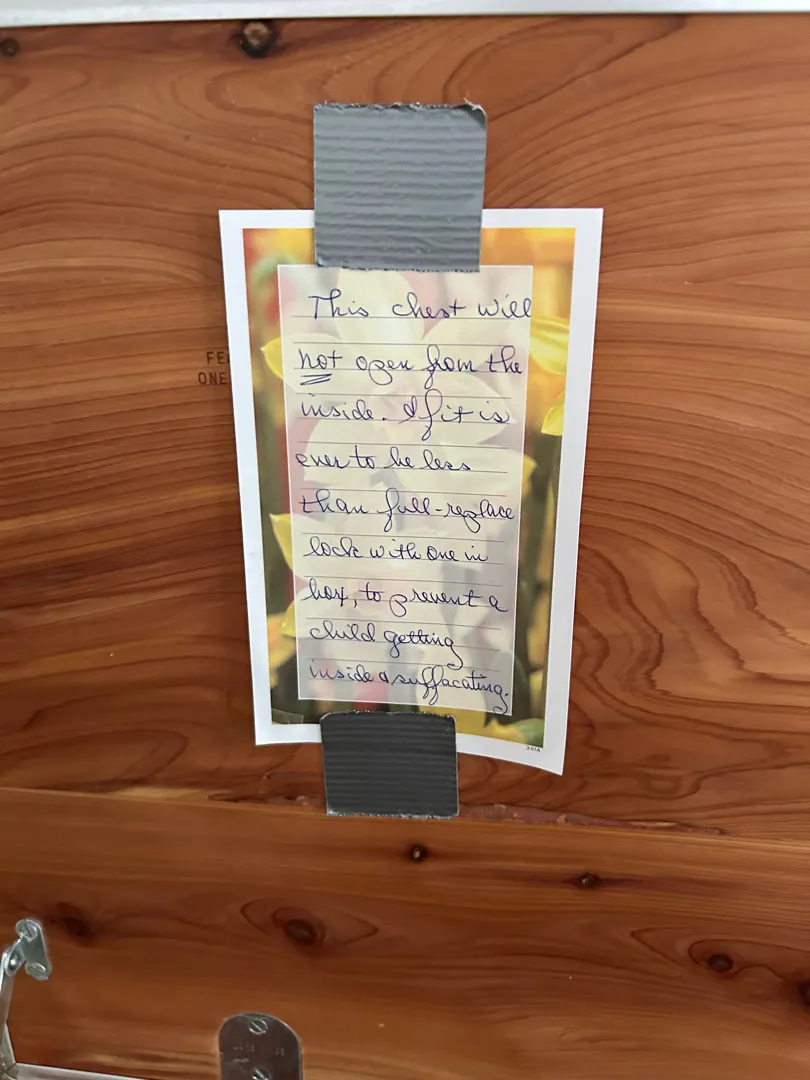 This chest will
not open from the
inside. If it is
ever to be less
than full-replace
lock with one in
box, to prevent a
child getting
inside & suffacating.
FE
ONE